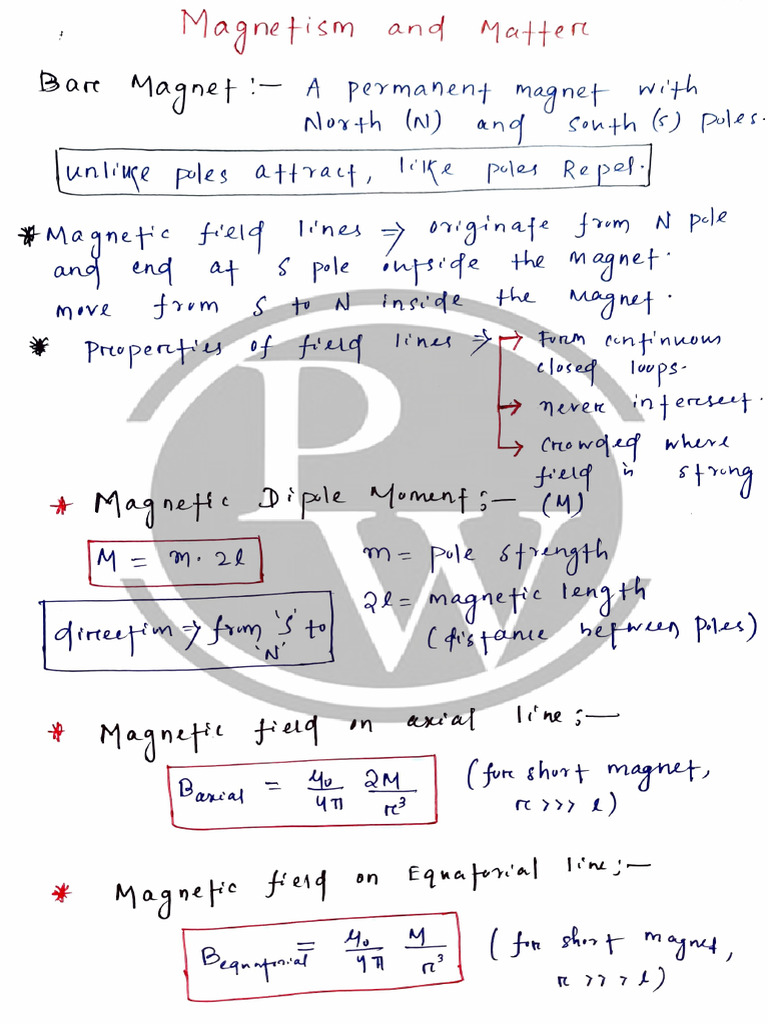 Magnetism and Matter
Bar Magnet :- A permanent magnet with
North (N) and South (S) poles.
unlike poles attract, like poles Repel.
* Magnetic field lines ⇒ originate from N pole
and end at S pole outside the magnet.
move from S to N inside the Magnet.
* Properties of field lines ⇒ → Form continuous
closed loops.
→ never intersect.
→ Crowded where
field is strong
* Magnetic Dipole Moment :- (M)
M = m · 2l
m = pole strength
2l = magnetic length
(distance between poles)
direction ⇒ from 'S' to
'N'
* Magnetic field on axial line :-
B_axial = μ₀/4π 2M/r³ (for short magnet,
r >>> l)
* Magnetic field on Equatorial line :-
B_equatorial = μ₀/4π M/r³ (for short magnet,
r >>> l)
PW